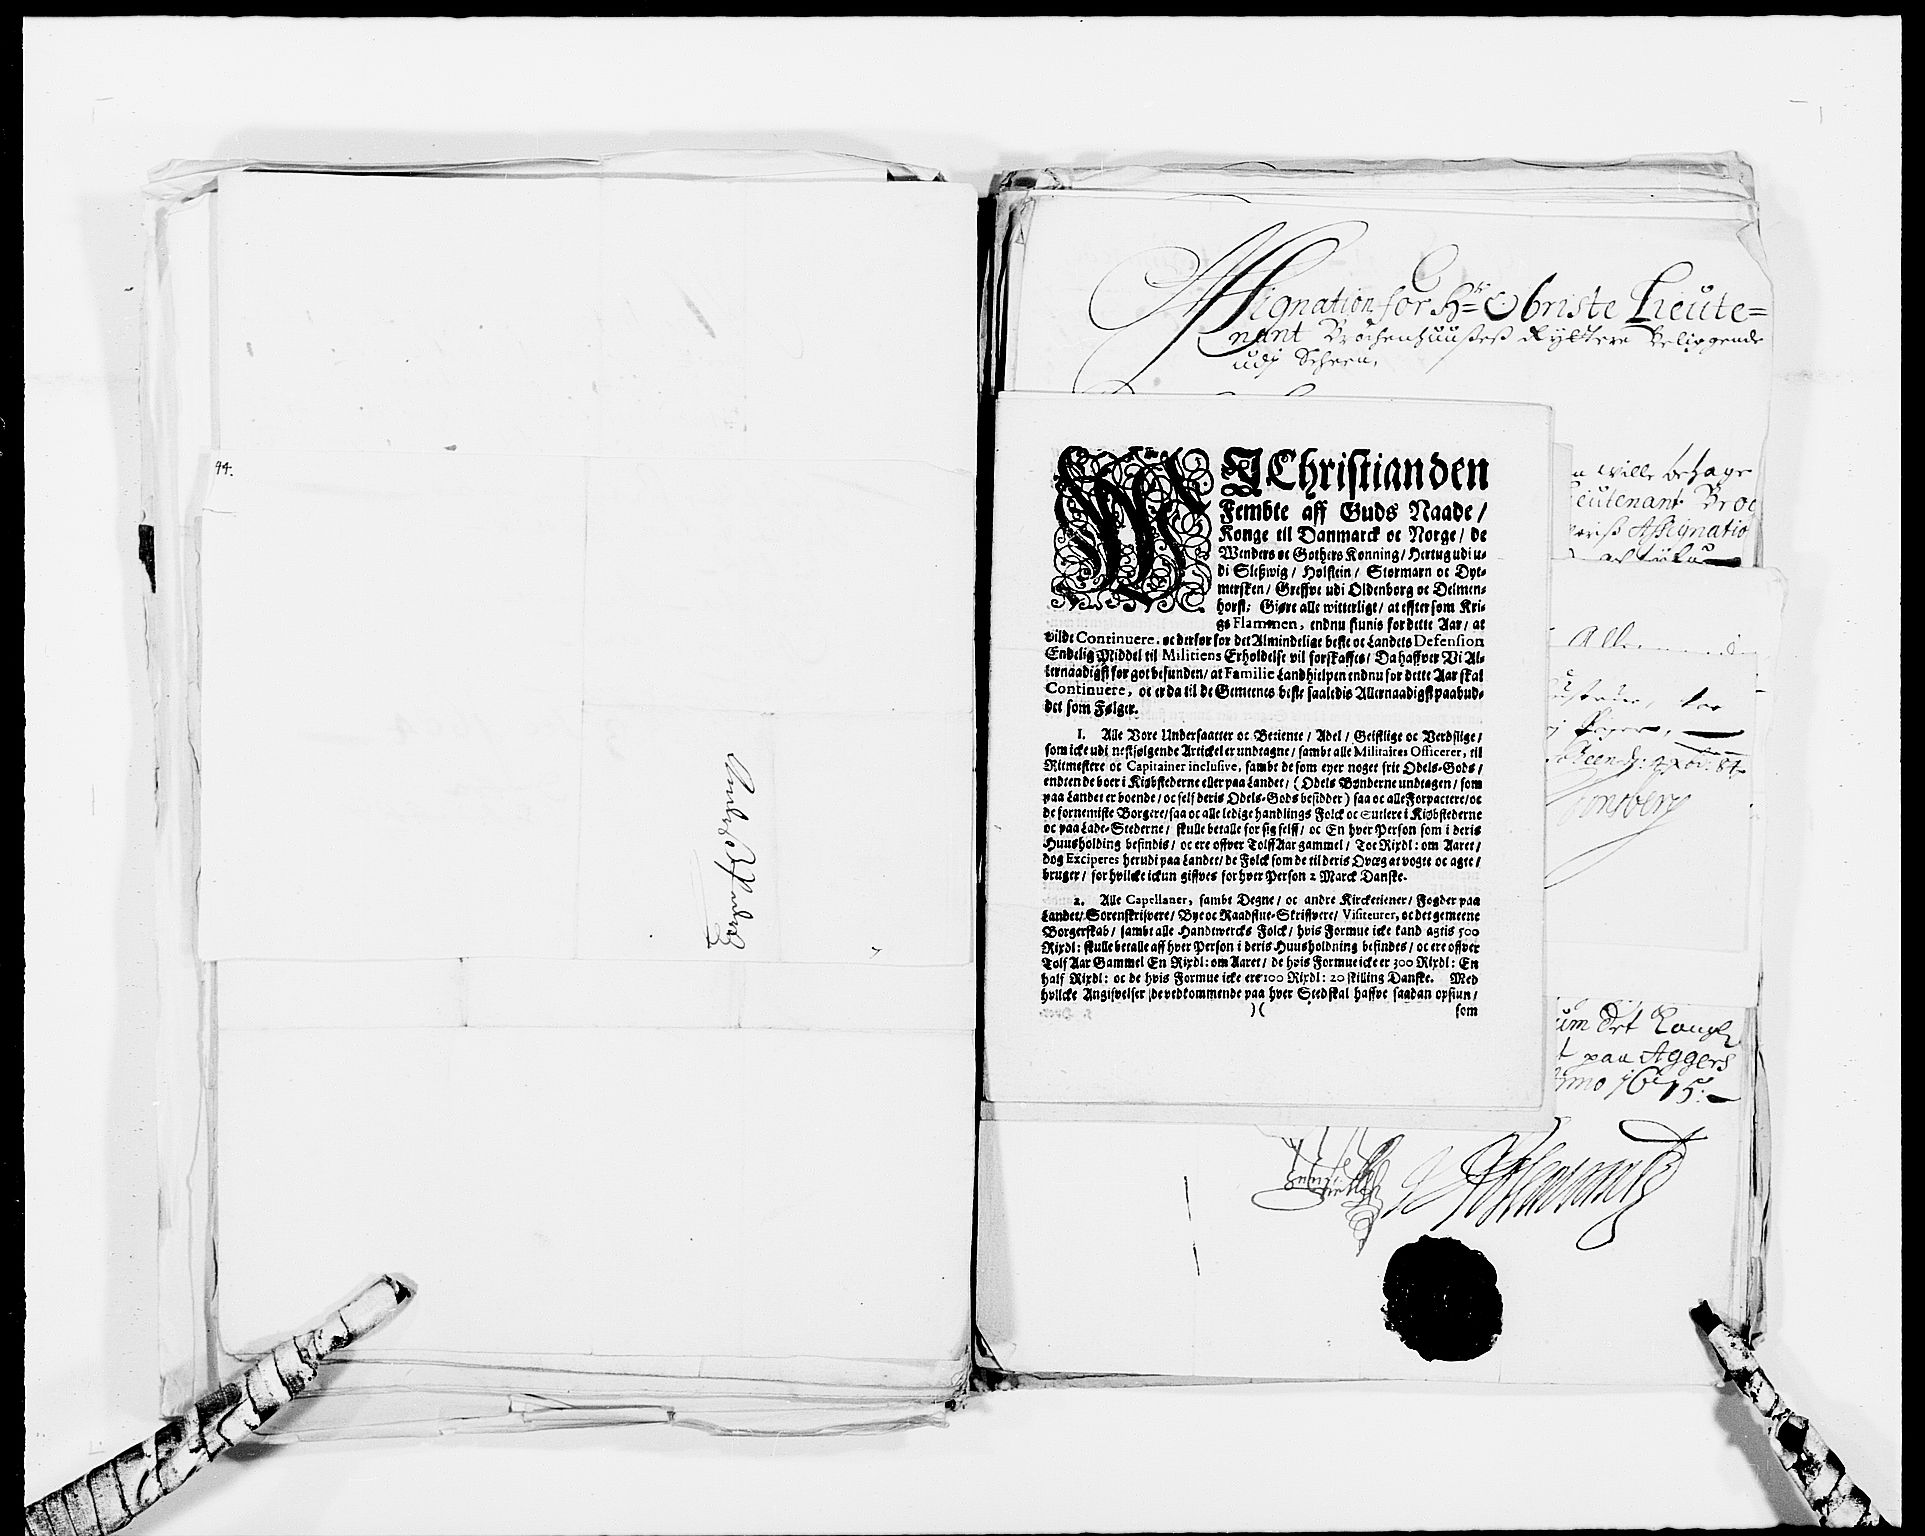 94.
Assignation for Hr: Obriste Lieute=
nant Brochenhuusses Rÿttere Beliggende
udj Scheen,
WJ Christian den
Fembte aff Guds Naade/
Konge til Danmarck oc Norge/ de
Wenders oc Gothers Konning/ Hertug udi u-
di Sleßwig/ Holstein/ Stormarn oc Dyt-
mersken/ Greffve udi Oldenborg oc Delmen-
horst; Giøre alle witterligt/ at effter som Kri-
gs Flammen, endnu siunis for dette Aar/ at
vilde Continuere, oc derfor for det Almindelige beste oc Landets Defension
Endelig Middel til Militiens Erholdelse vil forskaffes/ Da haffver Vi Al-
lernaadigst for got befunden/ at Familie Landhielpen endnu for dette Aar skal
Continuere, oc er da til de Gemeenes beste saaledis Allernaadigst paabud-
det som Følger.
1. Alle Vore Undersaatter oc Betiente/ Adel/ Geistlige oc Verdslige/
som icke udi nestfølgende Artickel er undtagne/ sambt alle Militaires Officerer, til
Ritmestere oc Capitainer inclusive, sambt de som eyer noget frit Odels-Gods/
endten de boer i Kiøbstederne eller paa Landet/ (Odels Bønderne undtagen/ som
paa Landet er boende/ oc self deris Odels-Gods besidder) saa oc alle Forpactere/ oc
de fornemiste Borgere/ saa oc alle ledige handlings Folck oc Sutlere i Kiøbstederne
oc paa Lade-Stederne/ skulle betalle for sig selff/ oc En hver Person som i deris
Huusholding befindis/ oc ere offver Tolff Aar gammel/ Toe Rixdl: om Aaret/
dog Exciperes herudi paa Landet/ de Folck som de til deris Qvæg at vogte oc agte/
bruger/ for hvilcke ickun giffves for hver Person 2 Marck Danske.
2. Alle Capellaner, sambt Degne/ oc andre Kircketiener/ Fogder paa
Landet/ Sorenskrifvere/ Bye oc Raadstue-Skriffvere/ Visiteurer, oc det gemeene
Borgerskab/ sambt alle Handtwercks Folck/ hvis Formue icke kand agtis 500
Rixdl: skulle betalle aff hver Person i deris Huusholdning befindes/ oc ere offver
Tolf Aar Gammel En Rixdl: om Aaret/ de hvis Formue icke er 300 Rixdl: En
half Rixdl: oc de hvis Formue icke ere 100 Rixdl: 20 skilling Danske. Med
hvilcke Angifvelser de vedkommende paa hver Sted skal haffve saadan opsiun/
)(
som
wille behage
Lieutenant Broc
Assignatio
um det Kongl
t paa Aggers
Anno 1675: